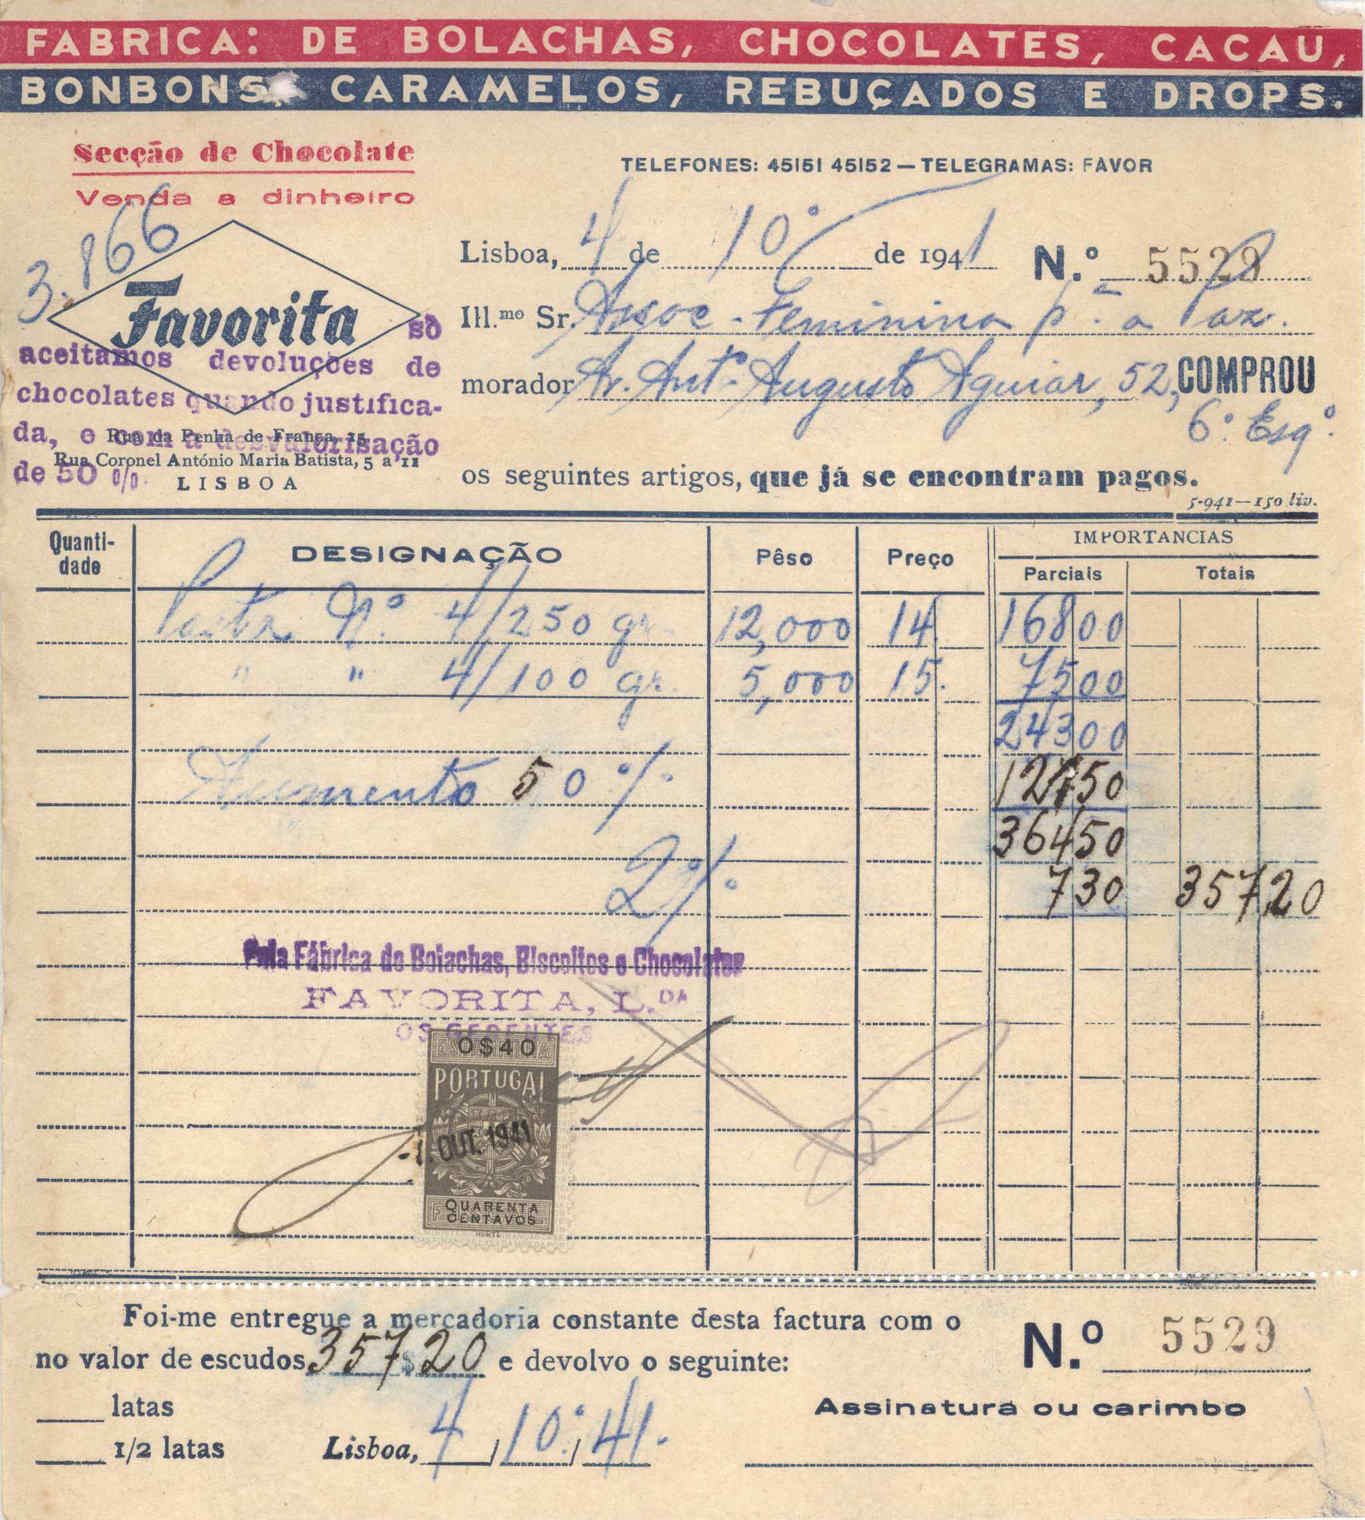 FABRICA: DE BOLACHAS, CHOCOLATES, CACAU,
BONBONS, CARAMELOS, REBUÇADOS E DROPS.
Secção de Chocolate
Venda a dinheiro
TELEFONES: 45151 45152 — TELEGRAMAS: FAVOR
3.866
Lisboa, 4 de 10º de 1941 N.º 5529
Favorita
Ill.mo Sr. Assoc. Feminina p.ª a Paz.
só
aceitamos devoluções de
chocolates quando justifica-
da, e com a desvalorisação
de 50 %.
morador Av. Antº Augusto Aguiar, 52, COMPROU
6º Esqº.
Rua da Penha de França, 15
Rua Coronel António Maria Batista, 5 a 11
LISBOA
os seguintes artigos, que já se encontram pagos.
5-941—150 liv.
Quanti-dade DESIGNAÇÃO Pêso Preço IMPORTANCIAS
Parciais Totais
Nº 4/250 gr. 12,000 14 16800
" " 4/100 gr. 5,000 15. 7500
24300
Aumento 50 % 12150
36450
2% 730 35720
Pela Fábrica de Bolachas, Biscoitos e Chocolates
FAVORITA, L.DA
OS GERENTES
0$40
PORTUGAL
OUT. 1941
QUARENTA
CENTAVOS
Foi-me entregue a mercadoria constante desta factura com o N.º 5529
no valor de escudos 357$20 e devolvo o seguinte:
latas
Assinatura ou carimbo
1/2 latas Lisboa, 4/10º/41.